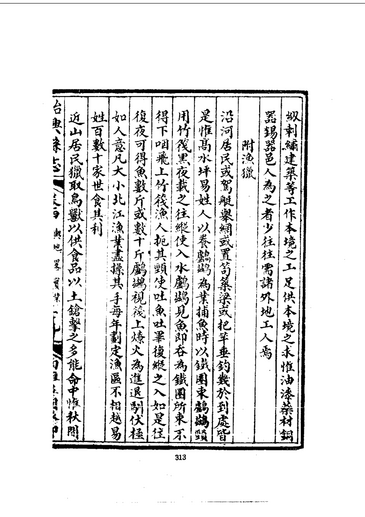 緞刺繡建築等工作本境之工足供本境之求惟油漆藥材銅
器錫器邑人為之者少往往需諸外地工人焉
附漁獵
沿河居民或駕艇舉網或置笱築梁或把竿垂釣幾於到處皆
是惟高水坪易姓人以養鸕鶿為業捕魚時以鐵圈束鸕鶿頸
用竹筏黑夜載之往縱使入水鸕鶿見魚即吞為鐵圈所束不
得下咽飛上竹筏漁人扼其頸使吐魚吐畢復縱之入如是往
復夜可得魚數斤或數十斤鸕鶿視筏上燎火為進退馴伏桂
如人意凡大小北江漁業盡操其手每年劃定漁區不相越易
姓百數十家世食其利
近山居民獵取鳥獸以供食品以土鎗擊之多能命中惟秋間
卷四 輿地畧
313